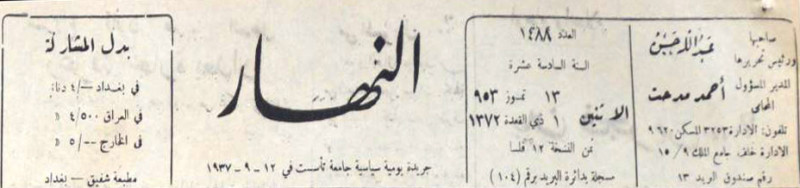 صاحبها
ورئيس تحريرها
المدير المسؤول أحمد مدحت
المحامي
تلفون: الادارة ٣٢٥٣ المسكن ٩٦٢٠
الادارة خلف جامع الملك ١٥/٩
رقم صندوق البريد ١٣
العدد ١٤٨٨
السنة السادسة عشرة
الاثنين
١٣ تموز ٩٥٣
١ ذي القعدة ١٣٧٢
ثمن النسخة ١٢ فلسا
مسجلة بدائرة البريد برقم (١٠٤)
النهار
جريدة يومية سياسية جامعة تأسست في ١٢ - ٩ - ١٩٣٧
بدل المشاركة
في بغداد ـ/٤ دنا:
في العراق ٤/٥٠٠ »
في الخارج ــ/٥ »
مطبعة شفيق - بغداد